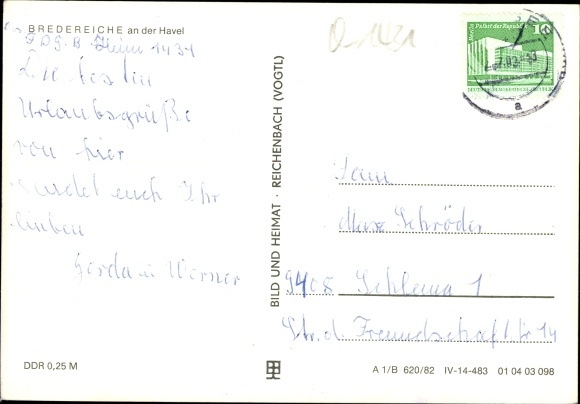 BREDEREICHE an der Havel
F.D.G.B. Heim 1431
Die besten
Urlaubsgrüße
von hier
sendet euch Ihr
lieben
Gerda u. Werner
DDR 0,25 M
BILD UND HEIMAT · REICHENBACH (VOGTL)
O-1431
Berlin, Palast der Republik
10
DEUTSCHE DEMOKRATISCHE REPUBLIK
a
Fam.
Max Schröder
9408 Schlema 1
Str. d. Freundschaft 14
A 1/B 620/82 IV-14-483 01 04 03 098